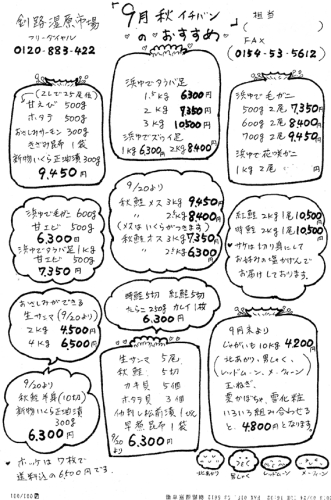 釧路湿原市場
フリーダイヤル
0120-883-422
9月秋イチバン
のおすすめ
担当
FAX
(0154-53-5612)
甘えび 500g
ホタテ 500g
おさしみサーモン 300g
きざみ昆布 1袋
新物いくら正油漬300g
9,450円
浜中でタラバ足
1.5kg 6300円
2kg 7350円
3kg 10500円
浜中でズワイ足
1kg 6,300円 2kg 8400円
浜中で毛ガニ
500g 2尾 7,350円
600g 2尾 8400円
700g 2尾 9,450円
浜中で花咲ガニ
1kg 2尾
浜中で毛ガニ 600g
甘エビ 500g
6,300円
浜中でタラバ足1kg
甘エビ 500g
7,350円
9/20より
秋鮭メス 3kg 9450円
〃 2kg 8400円
(メスはいくらがつきます)
秋鮭オス 3kg 7,350円
〃 2kg 6,300円
紅鮭 2kg 1尾 10,500円
時鮭 2kg 1尾 10,500円
♥サケは切り身にして
お届けしております。
おさしみができる
生サンマ (9/20より)
2kg 4,500円
4kg 6,500円
時鮭5切 紅鮭5切
たらこ250g カレイ1枚
6,300円
9/20より
秋鮭半身(10切)
新物いくら正油漬
300g
6,300円
生サンマ 5尾
秋鮭 5切
カキ貝 5個
ホタテ貝 3個
早煮昆布 1袋
9/20より 6,300円
9月末より
じゃがいも 10kg 4,200円
(北あかり、男しゃく、
レッドムーン、メークィーン)
玉ねぎ、
愛かぼちゃ、雪化粧
いろいろ組み合わせる
と、4,800円となります。
♥ホッケは7枚で
送料込の6500円です。
北あかり
男しゃく
レッドムーン
メークィーン